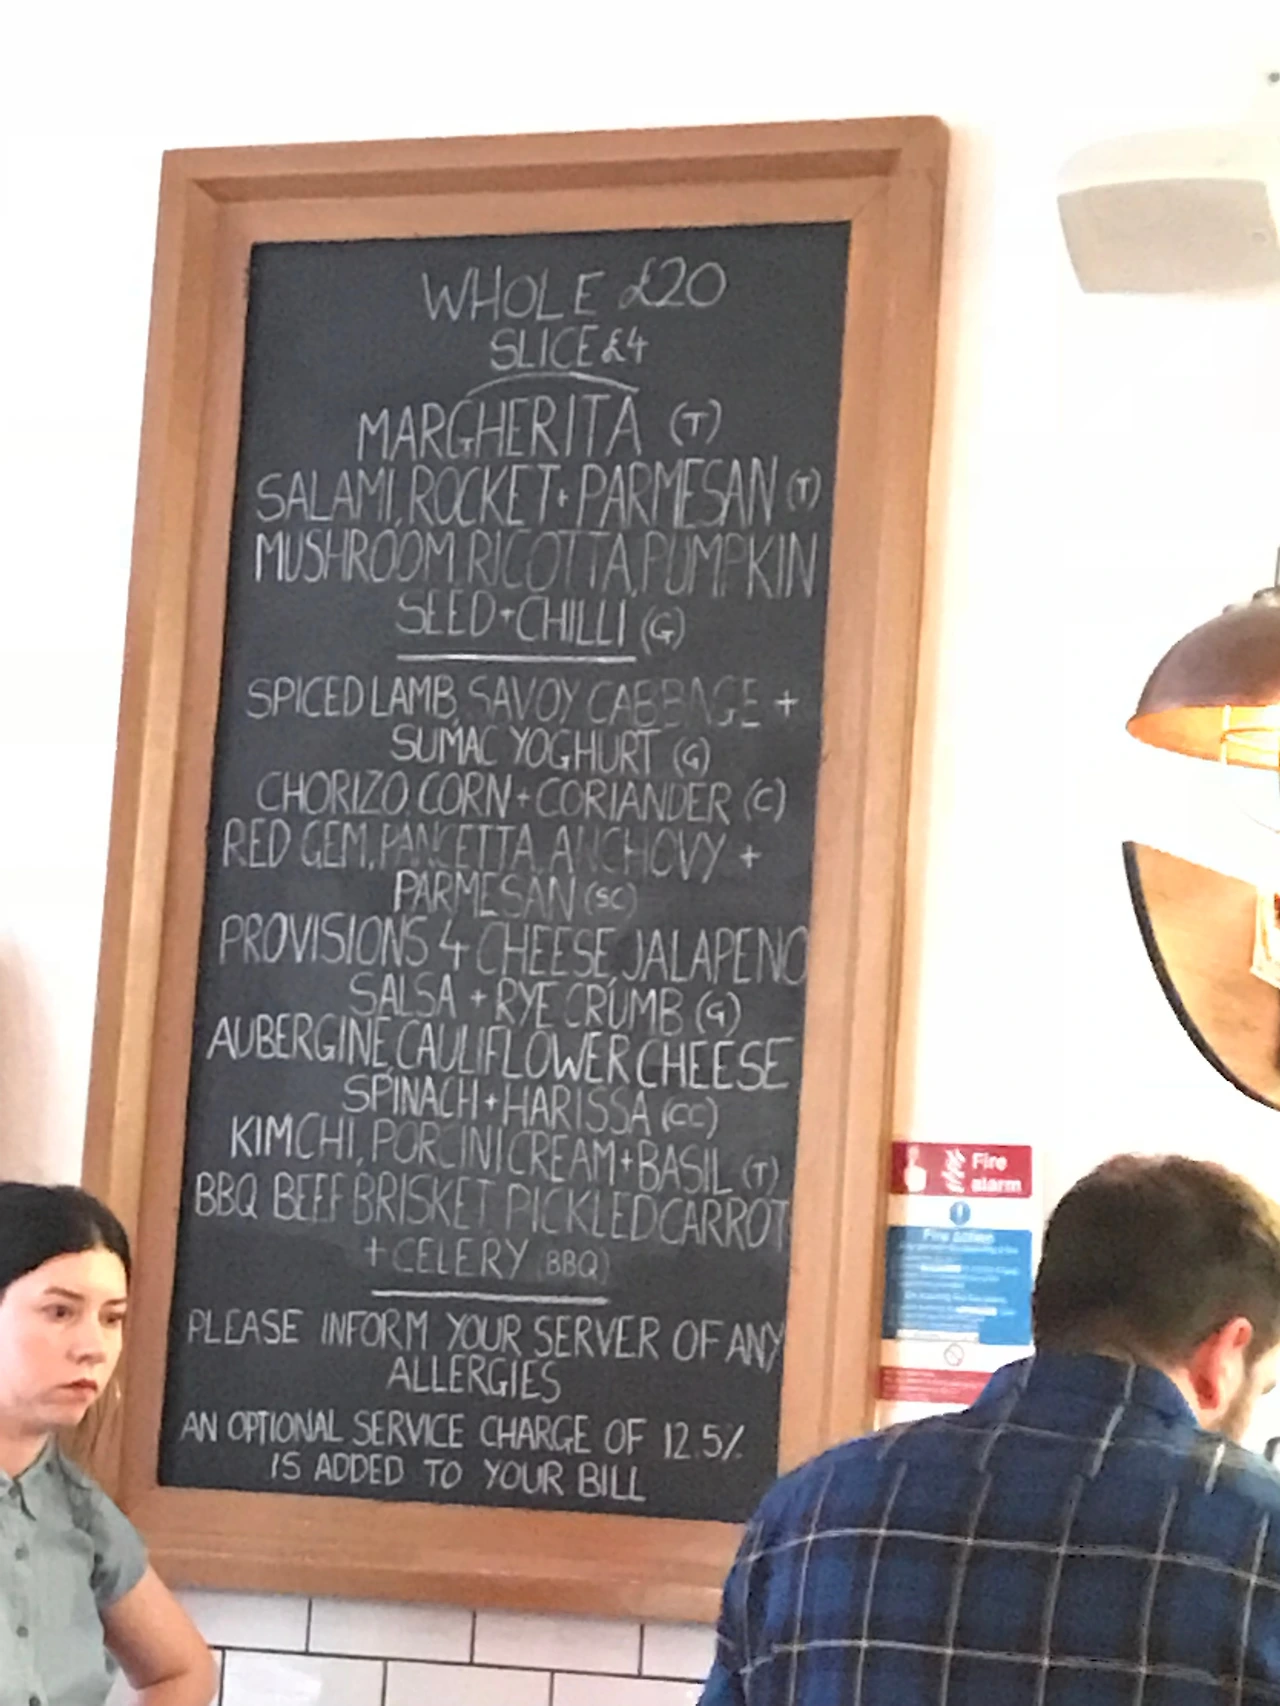 WHOLE £20
SLICE £4
MARGHERITA (T)
SALAMI, ROCKET + PARMESAN (T)
MUSHROOM, RICOTTA, PUMPKIN
SEED + CHILLI (G)
SPICED LAMB, SAVOY CABBAGE +
SUMAC YOGHURT (G)
CHORIZO, CORN + CORIANDER (C)
RED GEM, PANCETTA, ANCHOVY +
PARMESAN (SC)
PROVISIONS 4 CHEESE, JALAPENO
SALSA + RYE CRUMB (G)
AUBERGINE, CAULIFLOWER CHEESE
SPINACH + HARISSA (CC)
KIMCHI, PORCINI CREAM + BASIL (T)
BBQ BEEF BRISKET, PICKLED CARROT
+ CELERY (BBQ)
PLEASE INFORM YOUR SERVER OF ANY
ALLERGIES
AN OPTIONAL SERVICE CHARGE OF 12.5%
IS ADDED TO YOUR BILL
Fire
alarm
Fire action